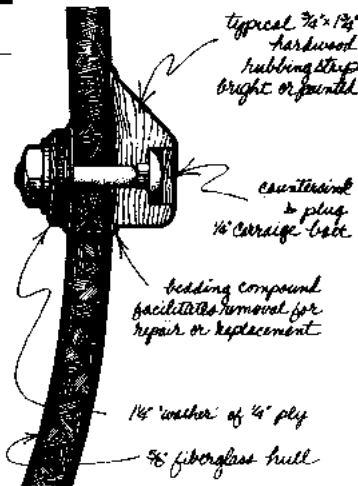 typical 3/4" x 1 3/4"
hardwood
rubbing strip
bright or painted
countersink
& plug
1/4" carraige bolt
bedding compound
facilitates removal for
repair or replacement
1 1/4" 'washer' of 1/4" ply
5/8" fiberglass hull